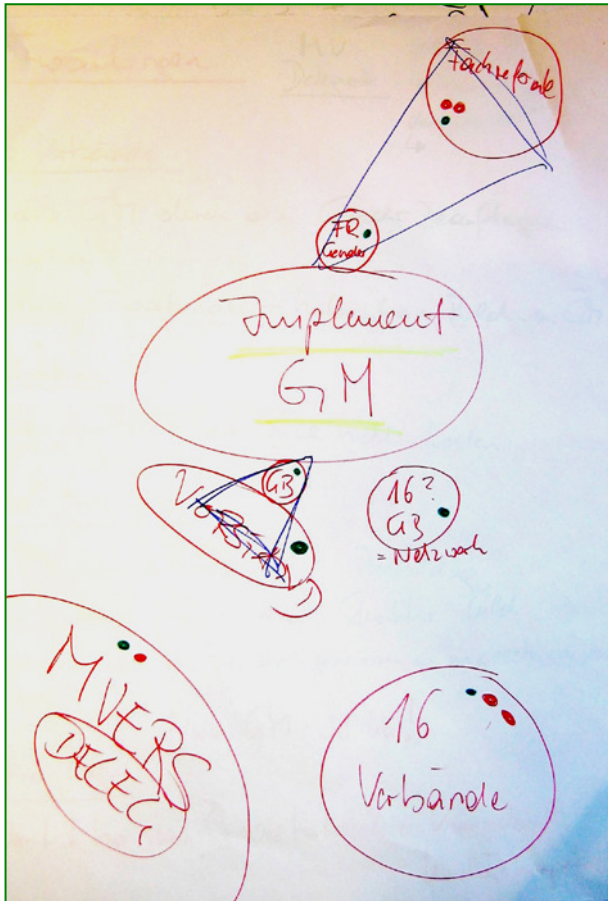 Fachreferate
FR
Gender
Implement
GM
GB
VORSTAND
16?
GB
= Netzwerk
MVERS
DELEG
16
Verbände